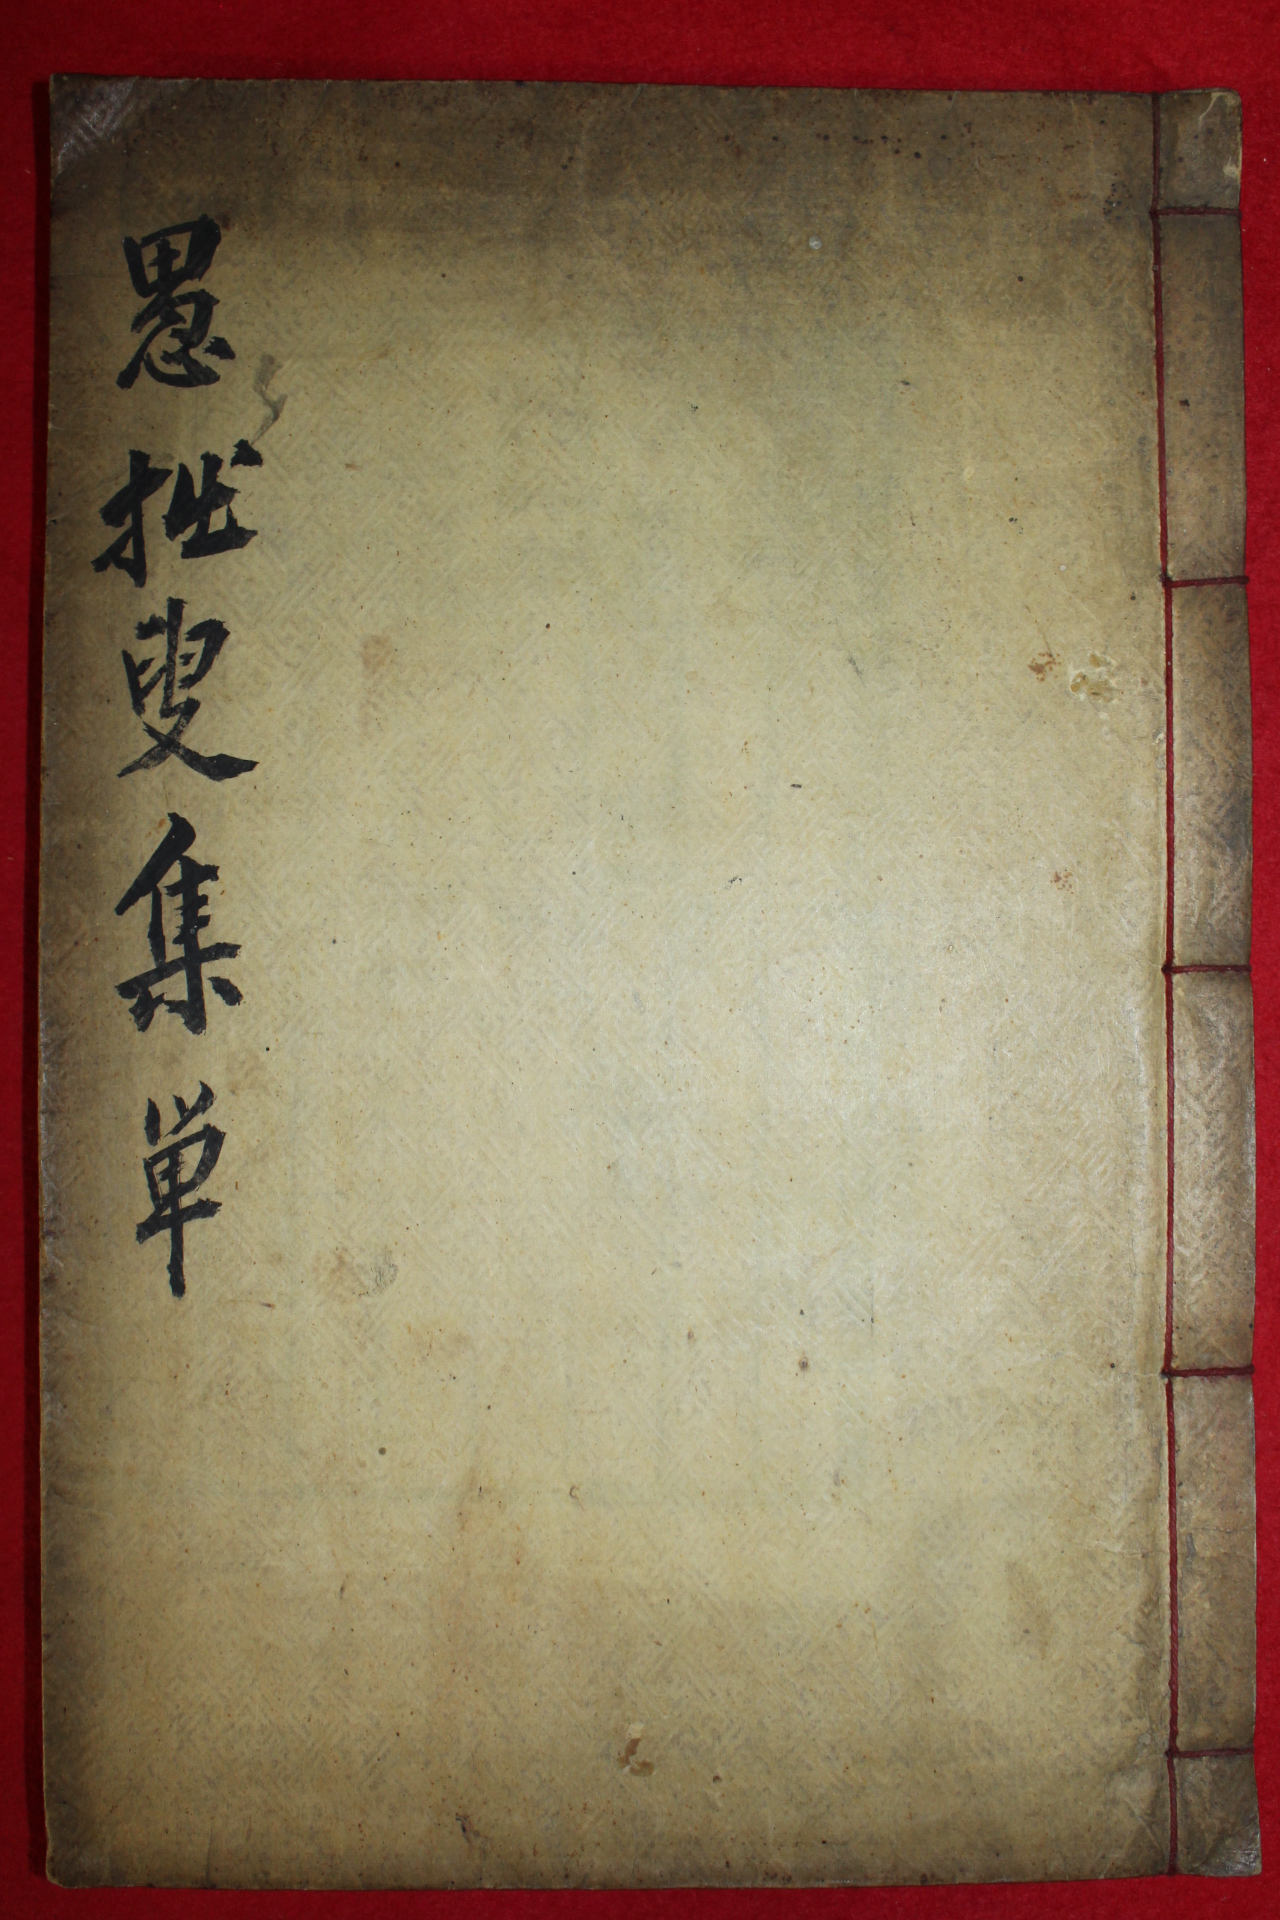 愚拙叟集 単